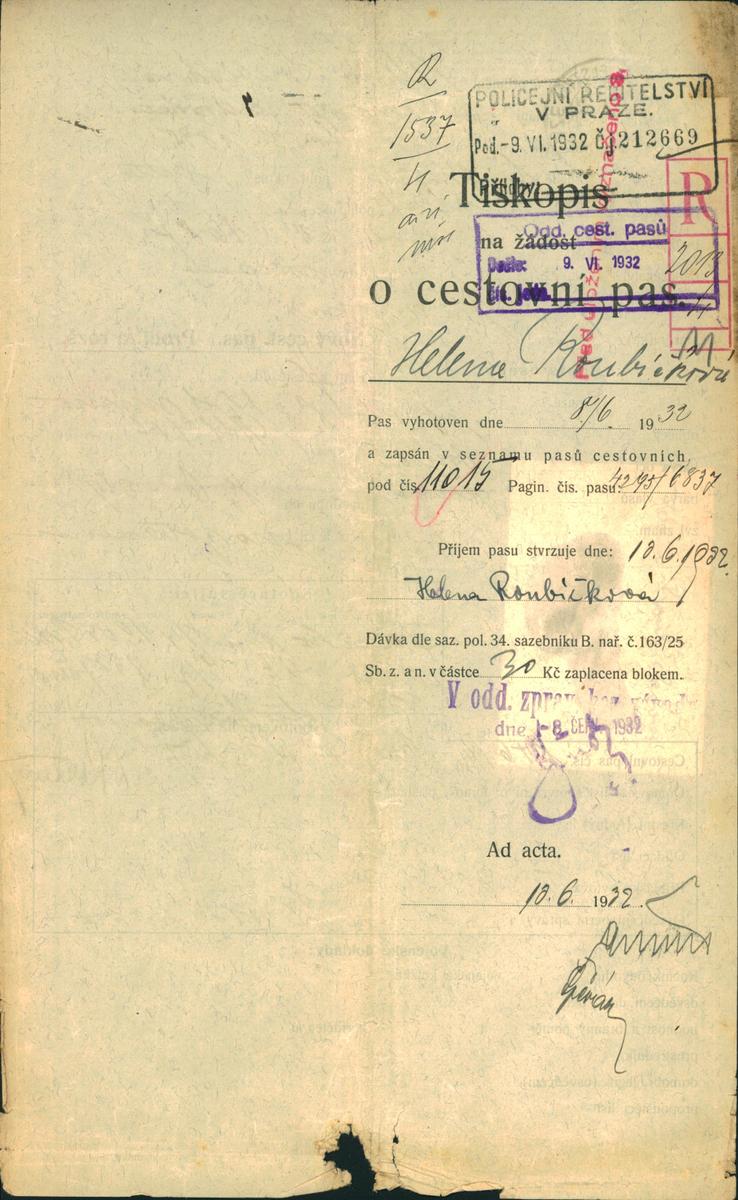 R
1537
POLICEJNÍ ŘEDITELSTVÍ
V PRAZE.
Pod. -9. VI. 1932 Čj. 212669
Přílohy:
Tiskopis
R
Odd. cest. pasů
na žádost
Došlo: 9. VI. 1932
2013
o cestovní pas.
Helena Roubíčková
Pas vyhotoven dne 8/6 1932
a zapsán v seznamu pasů cestovních
pod čís. 11015 Pagin. čís. pasu 4295/6837
Příjem pasu stvrzuje dne: 10.6.1932.
Helena Roubíčková
Dávka dle saz. pol. 34. sazebníku B. nař. č. 163/25
Sb. z. a n. v částce 30 Kč zaplacena blokem.
V odd. zpráv bez
dne -8. ČER. 1932
Ad acta.
10.6. 1932.